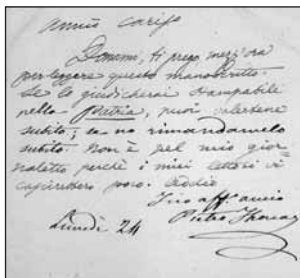 amico carissº
Donami, ti prego mezz'ora
per leggere questo manoscritto.
Se lo giudicherai stampabile
nella Patria, puoi valertene
subito; se no rimandamelo
subito. Non è pel mio gior-
naletto perchè i miei lettori vi
capirebbero poco. Addio
Tuo affº amico
Pietro Thouar
Lunedì 24